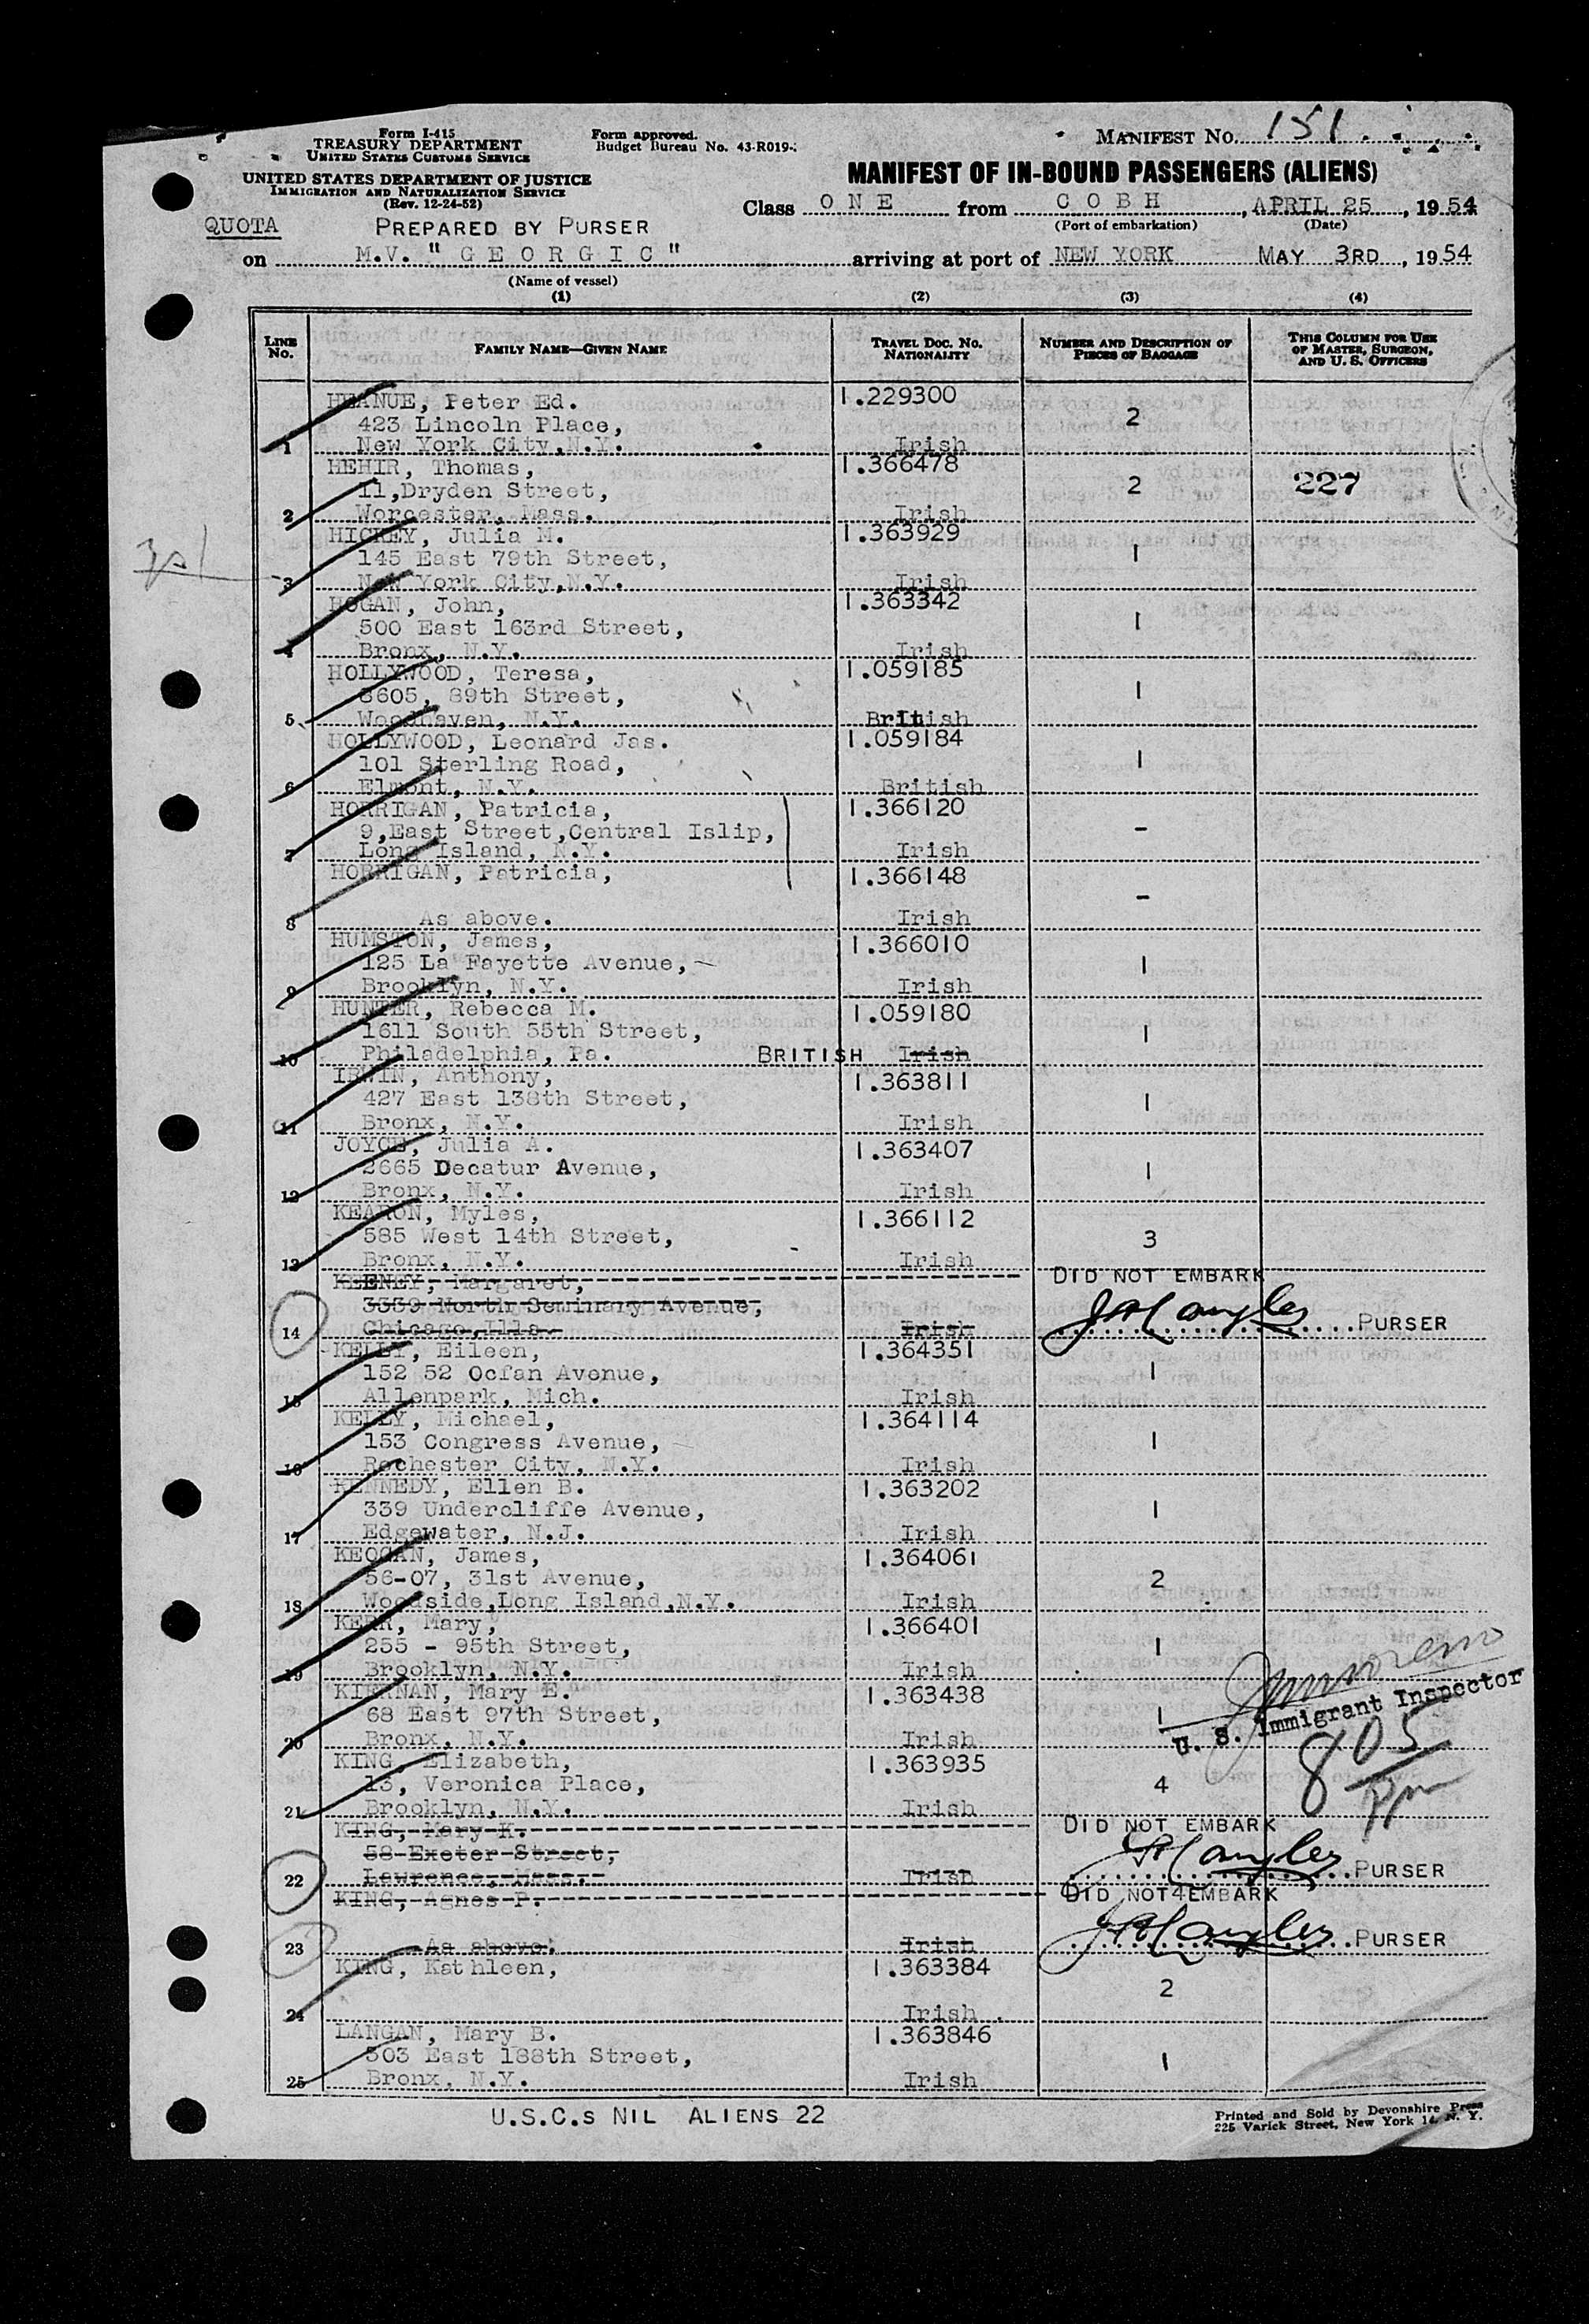 Form I-415
TREASURY DEPARTMENT
UNITED STATES CUSTOMS SERVICE
Form approved.
Budget Bureau No. 43-R019-
MANIFEST NO. 151
UNITED STATES DEPARTMENT OF JUSTICE
IMMIGRATION AND NATURALIZATION SERVICE
(Rev. 12-24-52)
MANIFEST OF IN-BOUND PASSENGERS (ALIENS)
Class ONE from COBH, APRIL 25, 1954
(Port of embarkation) (Date)
QUOTA PREPARED BY PURSER
on M.V. "GEORGIC" arriving at port of NEW YORK MAY 3RD, 1954
(Name of vessel)
(1) (2) (3) (4)
LINE No. FAMILY NAME—GIVEN NAME TRAVEL DOC. NO. NATIONALITY NUMBER AND DESCRIPTION OF PIECES OF BAGGAGE THIS COLUMN FOR USE OF MASTER, SURGEON, AND U. S. OFFICERS
HEANUE, Peter Ed. 1.229300
423 Lincoln Place, 2
1 New York City,N.Y. Irish
HEHIR, Thomas, 1.366478
11,Dryden Street, 2 227
2 Worcester, Mass. Irish
HICKEY, Julia M. 1.363929
145 East 79th Street, 1
3 New York City,N.Y. Irish
HOGAN, John, 1.363342
500 East 163rd Street, 1
4 Bronx, N.Y. Irish
HOLLYWOOD, Teresa, 1.059185
8605, 89th Street, 1
5 Woodhaven, N.Y. British
HOLLYWOOD, Leonard Jas. 1.059184
101 Sterling Road, 1
6 Elmont, N.Y. British
HORRIGAN, Patricia, 1.366120
9,East Street,Central Islip, -
7 Long Island, N.Y. Irish
HORRIGAN, Patricia, 1.366148
-
8 As above. Irish
HUMSTON, James, 1.366010
125 La Fayette Avenue, 1
9 Brooklyn, N.Y. Irish
HUNTER, Rebecca M. 1.059180
1611 South 55th Street, 1
10 Philadelphia, Pa. BRITISH Irish
IRWIN, Anthony, 1.363811
427 East 138th Street, 1
11 Bronx, N.Y. Irish
JOYCE, Julia A. 1.363407
2665 Decatur Avenue, 1
12 Bronx, N.Y. Irish
KEARON, Myles, 1.366112
585 West 14th Street, 3
13 Bronx, N.Y. Irish
KEENEY, Margaret, DID NOT EMBARK
3339 North Seminary Avenue,
14 Chicago,Ills. Irish PURSER
KELLY, Eileen, 1.364351
152 52 Ocfan Avenue, 1
15 Allenpark, Mich. Irish
KELLY, Michael, 1.364114
153 Congress Avenue, 1
16 Rochester City, N.Y. Irish
KENNEDY, Ellen B. 1.363202
339 Undercliffe Avenue, 1
17 Edgewater, N.J. Irish
KEOGAN, James, 1.364061
56-07, 31st Avenue, 2
18 Woodside,Long Island,N.Y. Irish
KERR, Mary, 1.366401
255 - 95th Street, 1
19 Brooklyn, N.Y. Irish
KIERNAN, Mary E. 1.363438
68 East 97th Street, 1
U. S. Immigrant Inspector
20 Bronx, N.Y. Irish
805
KING, Elizabeth, 1.363935
13, Veronica Place, 4
21 Brooklyn, N.Y. Irish
KING, Mary K. DID NOT EMBARK
58 Exeter Street,
22 Lawrence, Mass. Irish PURSER
KING, Agnes P. DID NOT EMBARK
23 As above. Irish PURSER
KING, Kathleen, 1.363384
2
24 Irish.
LANGAN, Mary B. 1.363846
303 East 188th Street, 1
25 Bronx, N.Y. Irish
U.S.C.s NIL ALIENS 22
Printed and Sold by Devonshire Press
225 Varick Street, New York 14, N. Y.